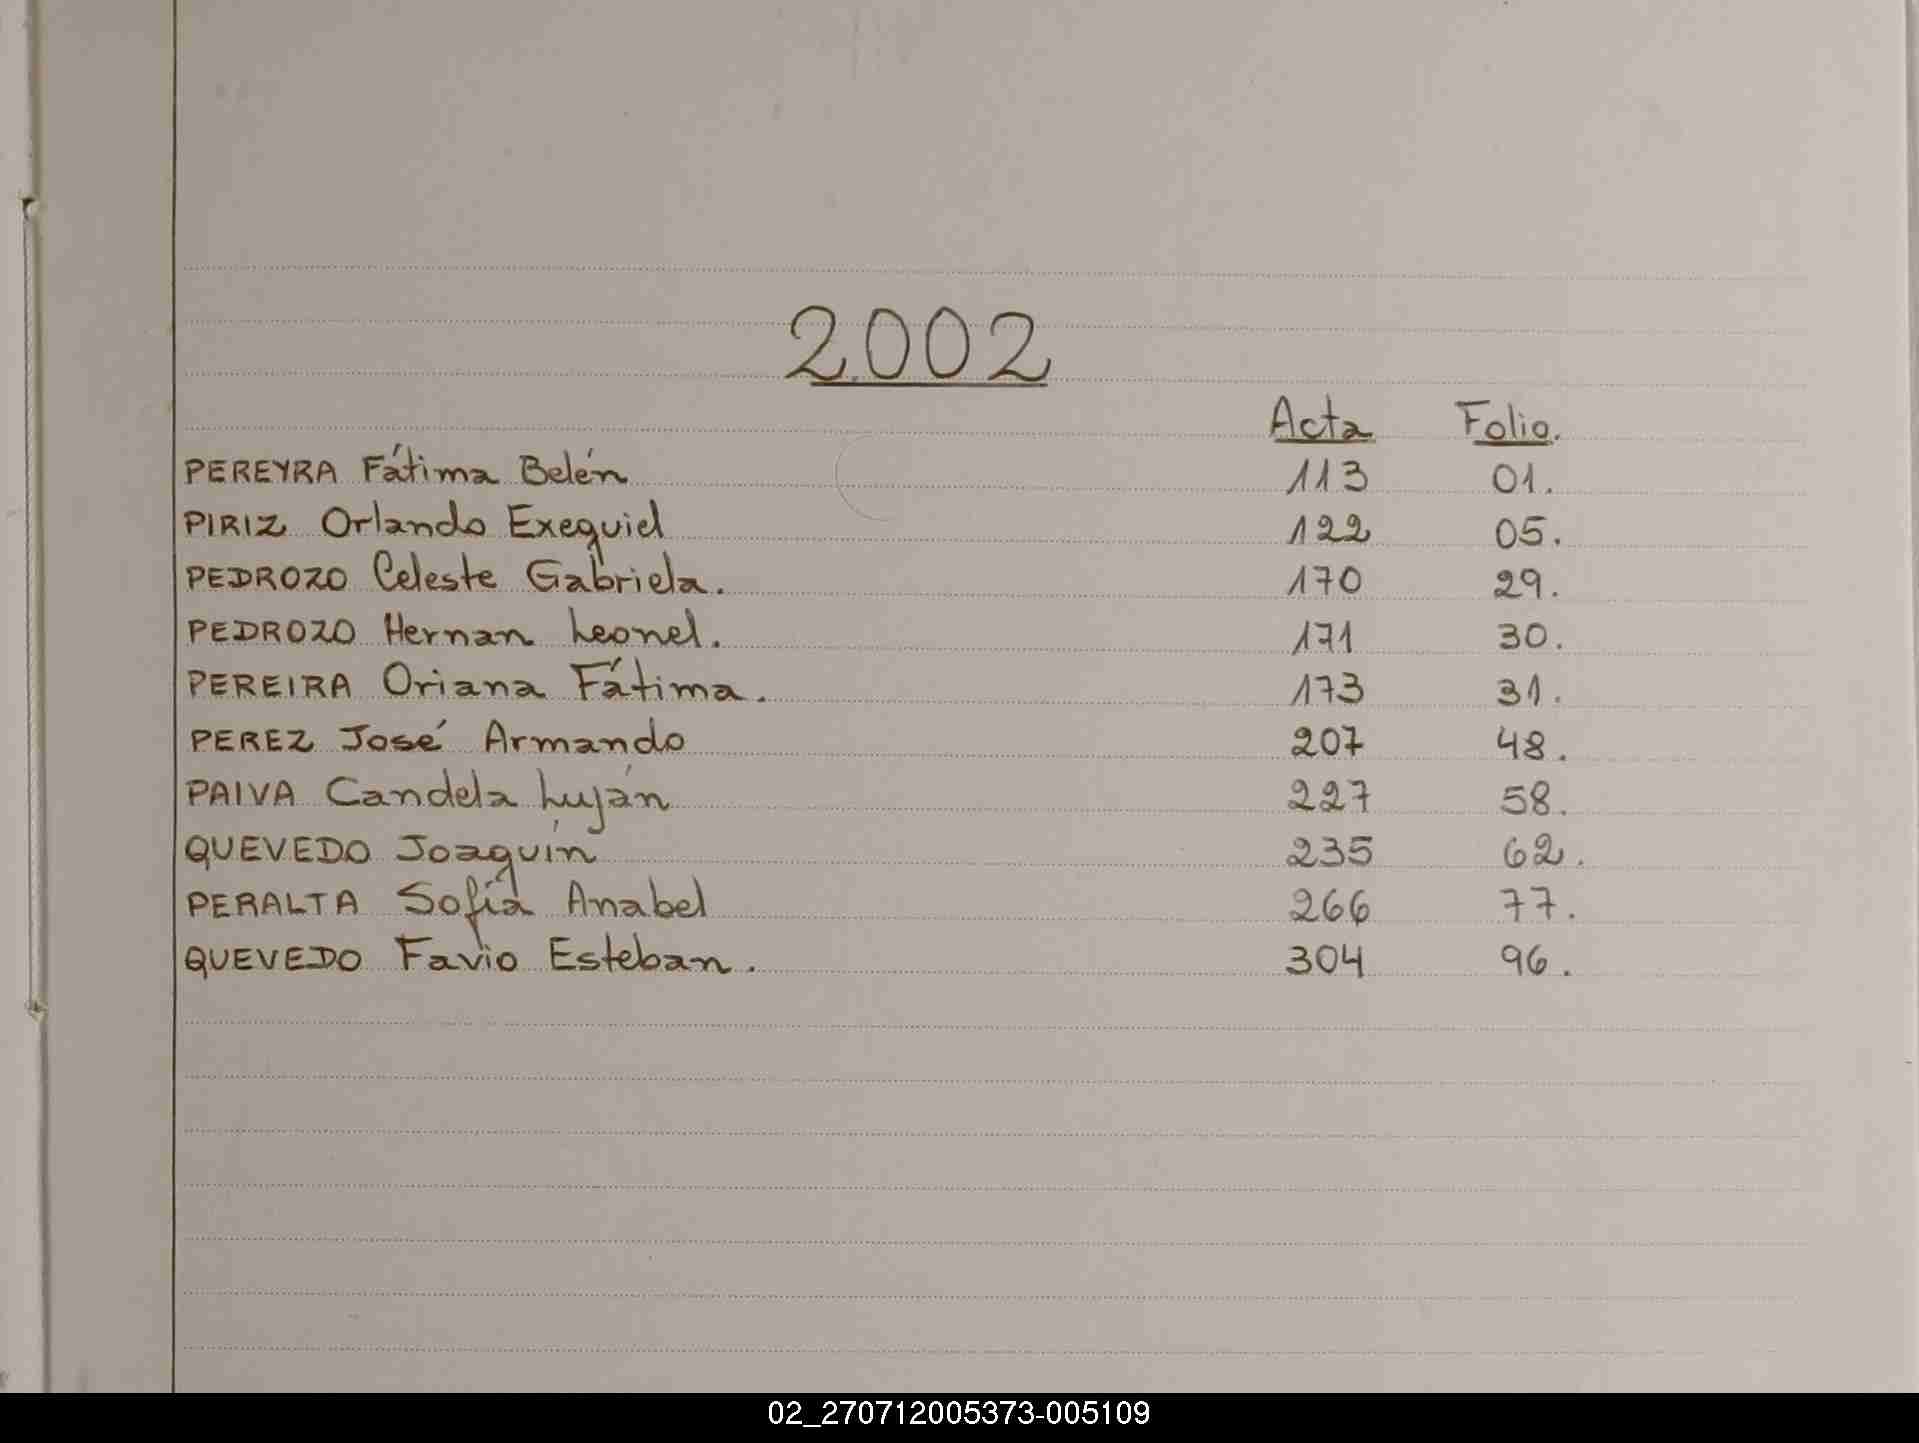 2.002
Acta Folio.
PEREYRA Fátima Belén 113 01.
PIRIZ Orlando Exequiel 122 05.
PEDROZO Celeste Gabriela. 170 29.
PEDROZO Hernan Leonel. 171 30.
PEREIRA Oriana Fátima. 173 31.
PEREZ José Armando 207 48.
PAIVA Candela Luján 227 58.
QUEVEDO Joaquín 235 62.
PERALTA Sofía Anabel 266 77.
QUEVEDO Favio Esteban. 304 96.
02_270712005373-005109